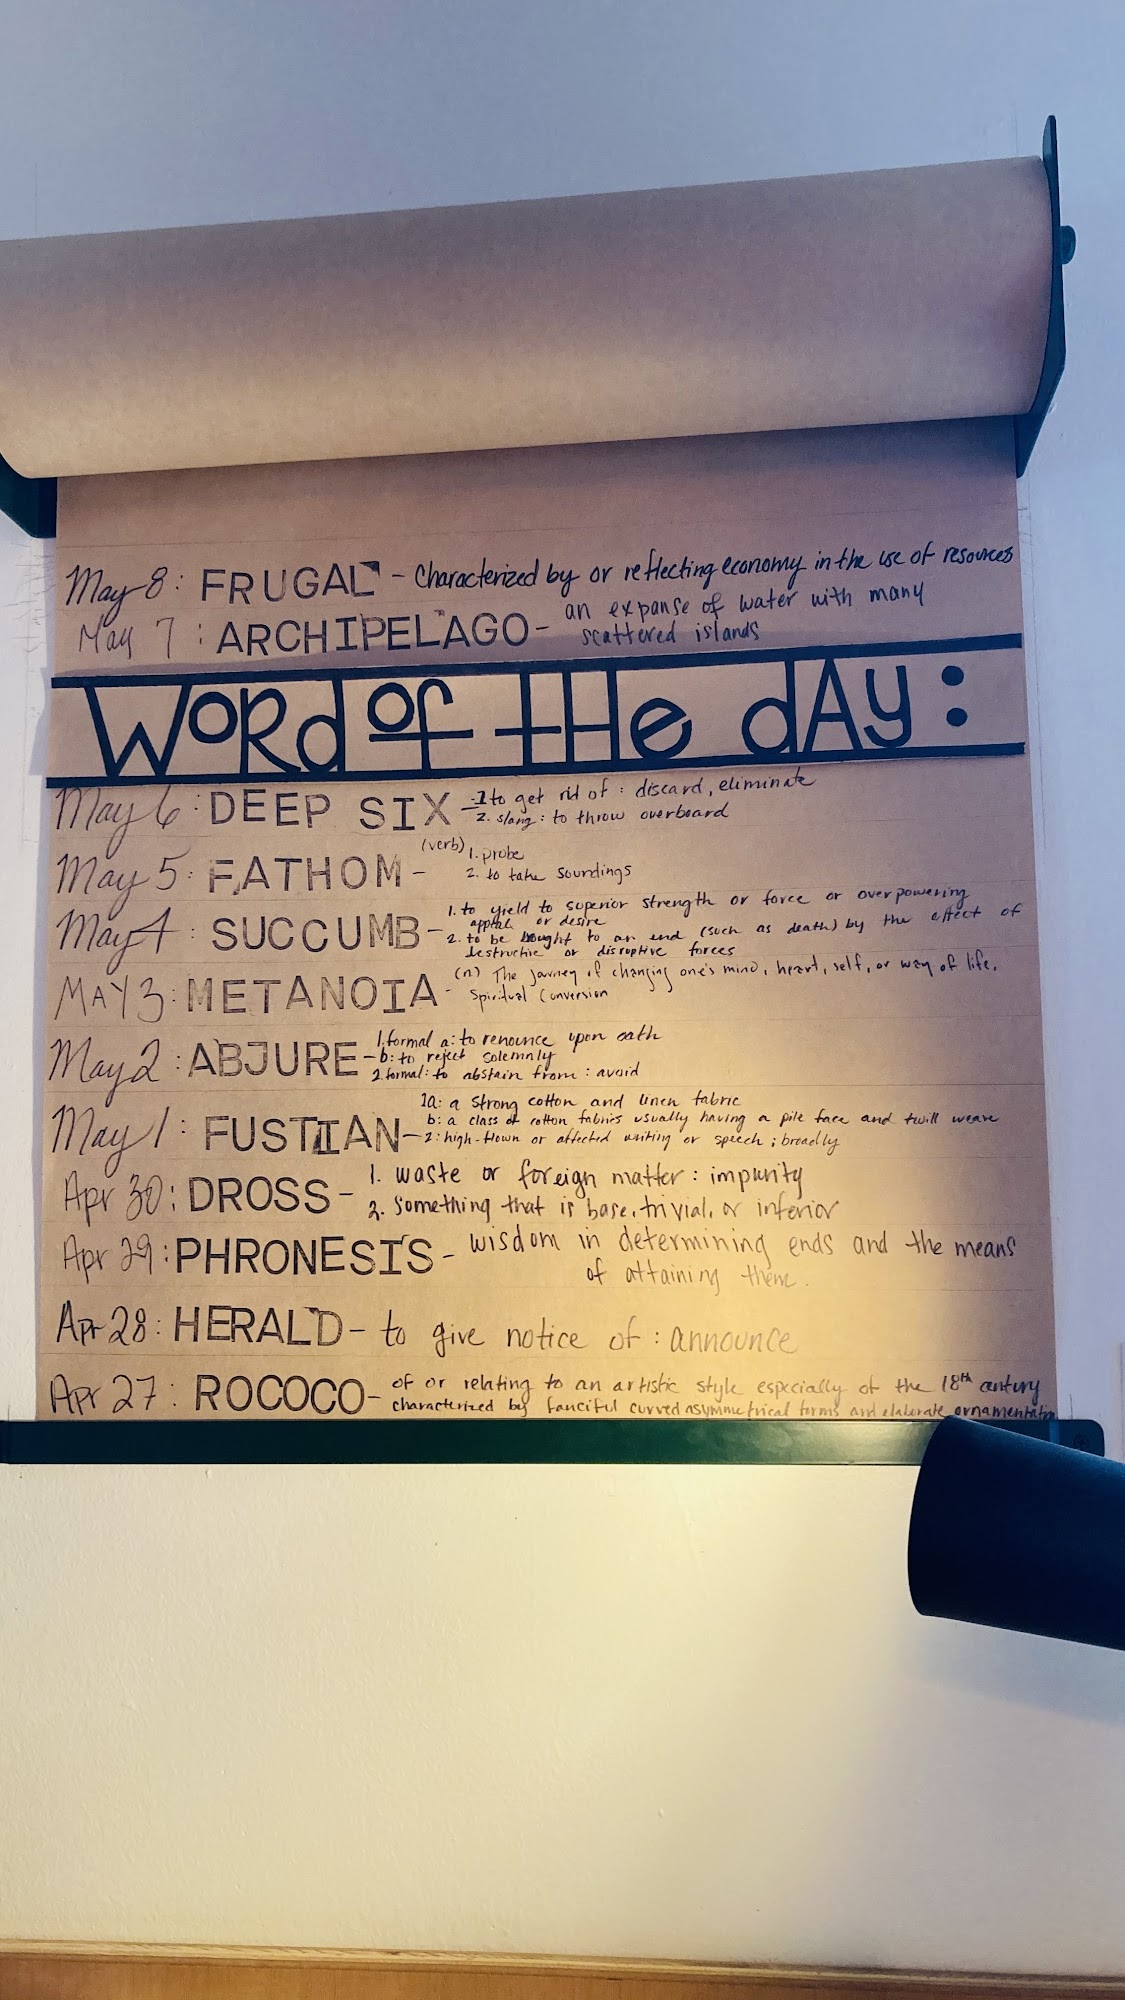 May 8: FRUGAL - Characterized by or reflecting economy in the use of resources
May 7: ARCHIPELAGO - an expanse of water with many
scattered islands
Word of the day:
May 6: DEEP SIX - 1 to get rid of: discard, eliminate
2. slang: to throw overboard
May 5: FATHOM - (verb) 1. probe
2. to take soundings
May 4: SUCCUMB - 1. to yield to superior strength or force or overpowering
appeal or desire
2. to be bought to an end (such as death) by the effect of
destructive or disruptive forces
MAY 3: METANOIA - (n) The journey of changing one's mind, heart, self, or way of life.
Spiritual Conversion
May 2: ABJURE - 1. formal a: to renounce upon oath
b: to reject solemnly
2. formal: to abstain from: avoid
May 1: FUSTIAN - 1a: a strong cotton and linen fabric
b: a class of cotton fabrics usually having a pile face and twill weave
2: high-flown or affected writing or speech; broadly
Apr 30: DROSS - 1. waste or foreign matter: impurity
2. Something that is base, trivial, or inferior
Apr 29: PHRONESIS - wisdom in determining ends and the means
of attaining them.
Apr 28: HERALD - to give notice of: announce
Apr 27: ROCOCO - of or relating to an artistic style especially of the 18th century
characterized by fanciful curved asymmetrical forms and elaborate ornamentation